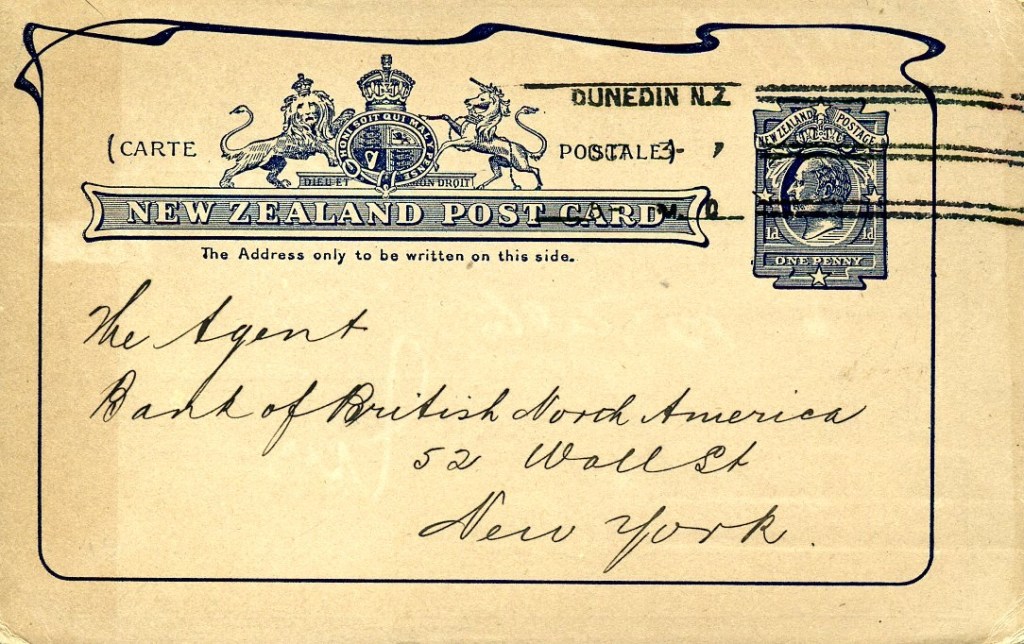 DUNEDIN N.Z
NEW ZEALAND POSTAGE
HONI SOIT QUI MAL Y PENSE
(CARTE POSTALE)
DIEU ET MON DROIT
NEW ZEALAND POST CARD
1d 1d
ONE PENNY
The Address only to be written on this side.
The Agent
Bank of British North America
52 Wall St
New York.